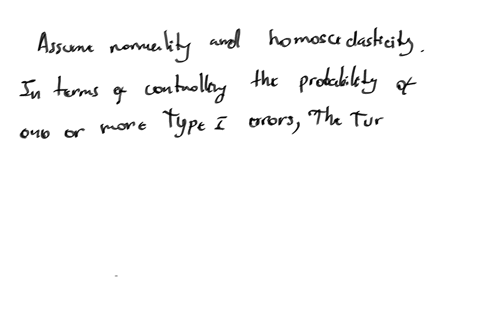 Assume normality and homoscedasticity.
In terms of controlling the probability of
one or more Type I errors, The Tur